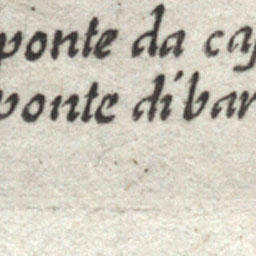 ponte da
ponte di bar